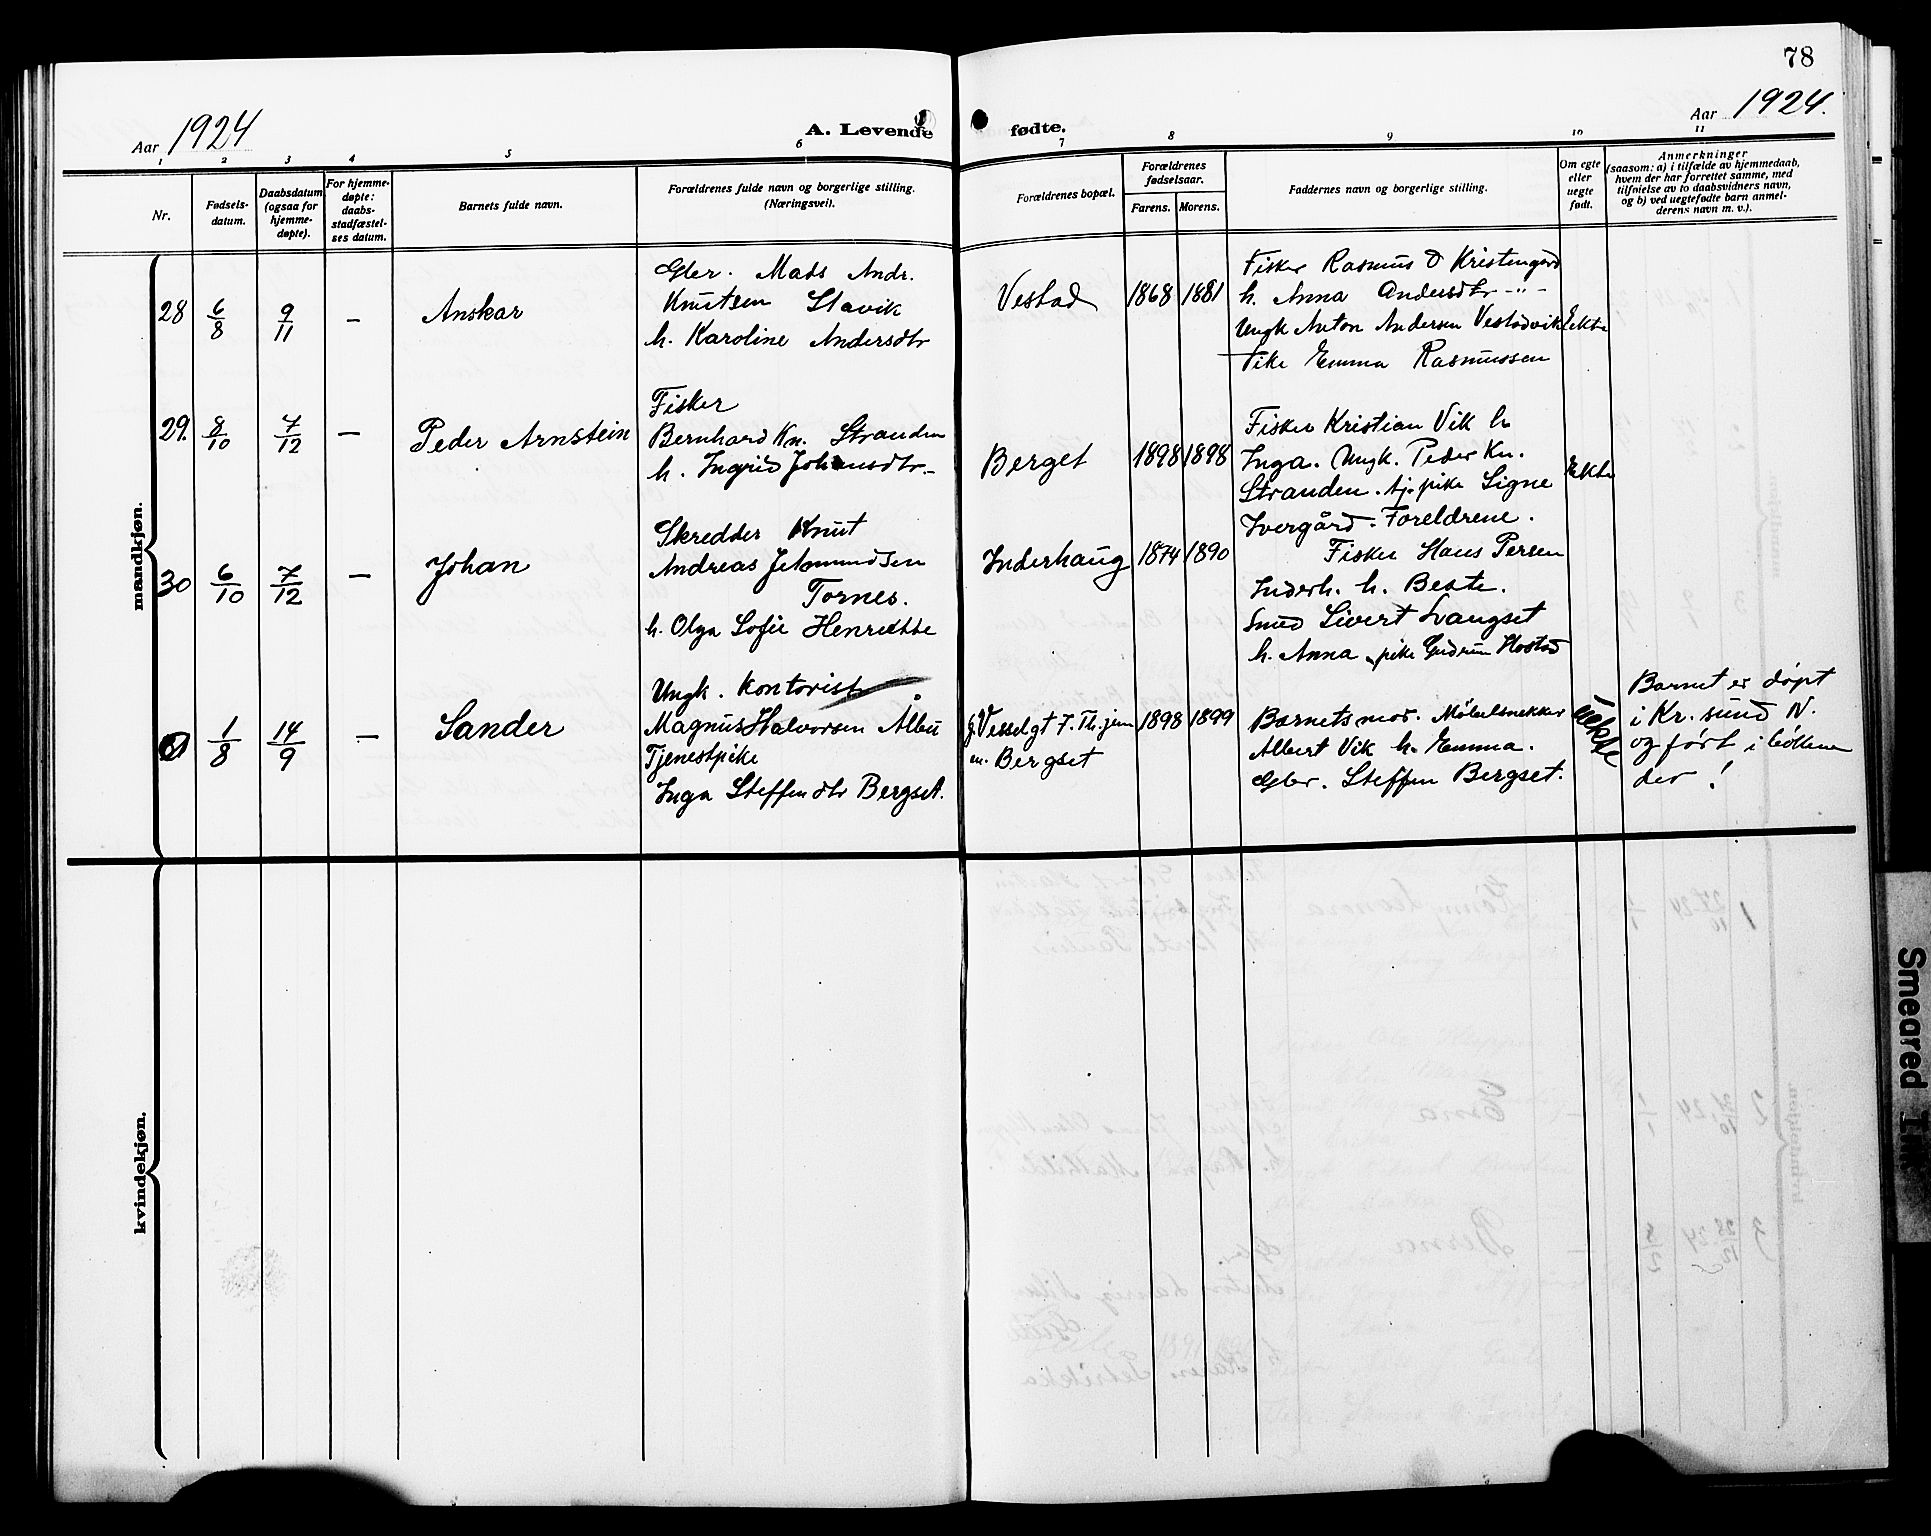 78
Aar 1924
A. Levende
fødte.
Aar 1924.
1 2 3 4 5 6 7 8 9 10 11
Nr.
Fødsels-
datum.
Daabsdatum
(ogsaa for
hjemme-
døpte).
For hjemme-
døpte:
daabs-
stadfæstel-
ses datum.
Barnets fulde navn.
Forældrenes fulde navn og borgerlige stilling.
(Næringsvei).
Forældrenes bopæl.
Forældrenes
fødselsaar.
Farens. Morens.
Faddernes navn og borgerlige stilling.
Om egte
eller
uegte
født.
Anmerkninger
(saasom: a) i tilfælde av hjemmedaab,
hvem der har forrettet samme, med
tilføielse av to daabsvidners navn,
og b) ved uegtefødte barn anmel-
derens navn m. v.).
mandkjøn.
28 6/8 9/11 — Anskar
Gbr. Mads Andr.
Knutsen Stavik
h. Karoline Andersdtr
Vestad 1868 1881
Fisker Rasmus O Kristengård
h. Anna Andersdtr -"-
Ungk Anton Andersen Vestadvik
Pike Emma Rasmussen
Ekte
29. 8/10 7/12 — Peder Arnstein
Fisker
Bernhard Kn. Stranden
h. Ingrid Johansdtr.
Berget 1898 1898
Fisker Kristian Vik h
Inga. Ungk. Peder Kn.
Stranden. tj. pike Signe
Ivergård. Foreldrene.
Ekte
30 6/10 7/12 — Johan
Skredder Knut
Andreas Jetmundsen
Tornes.
h. Olga Sofie Henrikke
Inderhaug 1874 1890
Fisker Hans Persen
Inderh. h. Beate.
Smed Sivert Svangset
h. Anna, pike Gudrun Hostad
0 1/8 14/9 — Sander
Ungk. Kontorist
Magnus Halvorsen Albu
Tjenestpike
Inga Steffensdtr Bergset.
f. Vesselgt 7. Th.jem
m. Bergset
1898 1899
Barnets mor. Møbelsnekker
Albert Vik h. Emma.
Gbr. Steffen Bergset.
Uekte
Barnet er døpt
i Kr. sund N.
og ført i bøkene
der!
kvindekjøn.
Smeared Ink